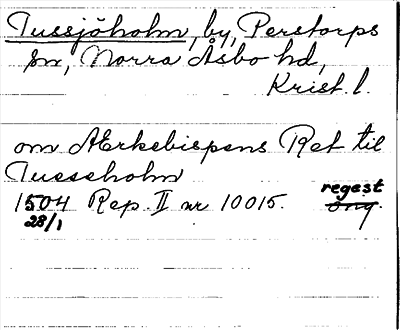 Tussjöholm, by, Perstorps
sn, Norra Åsbo hd,
Krist. l.
om Ærkebispens Ret til
Tuesseholm
1504 Rep. II nr 10015. regest
28/1 Orig.